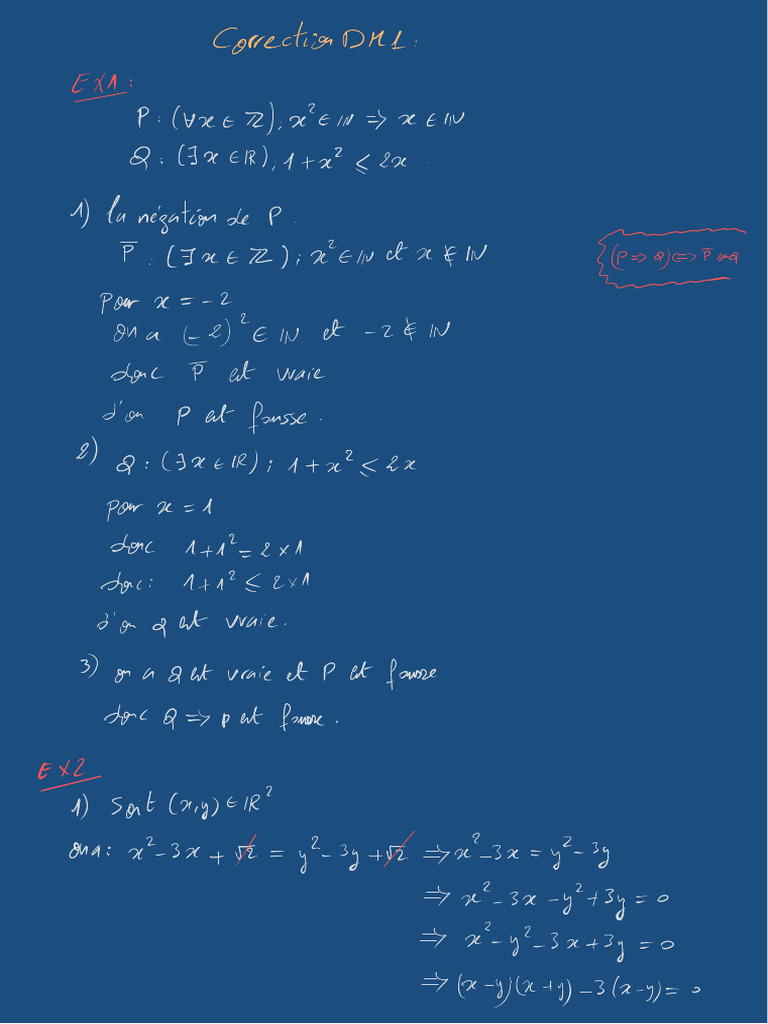 Correction DM1 :
EX1 :
P : (∀x ∈ ℤ) ; x² ∈ ℕ ⇒ x ∈ ℕ
Q : (∃x ∈ ℝ), 1 + x² ≤ 2x .
1) la négation de P .
P̅ : (∃x ∈ ℤ) ; x² ∈ ℕ et x ∉ ℕ
(P ⇒ Q) ⇔ P̅ ou Q
Pour x = -2
on a (-2)² ∈ ℕ et -2 ∉ ℕ
donc P̅ est vraie
d'où P est fausse .
2) Q : (∃x ∈ ℝ) ; 1 + x² ≤ 2x
pour x = 1
donc 1 + 1² = 2 × 1
donc : 1 + 1² ≤ 2 × 1
d'où Q est vraie .
3) on a Q est vraie et P est fausse
donc Q ⇒ P est fausse .
EX2
1) Soit (x,y) ∈ ℝ²
on a : x² - 3x + √2 = y² - 3y + √2 ⇒ x² - 3x = y² - 3y
⇒ x² - 3x - y² + 3y = 0
⇒ x² - y² - 3x + 3y = 0
⇒ (x - y)(x + y) - 3(x - y) = 0